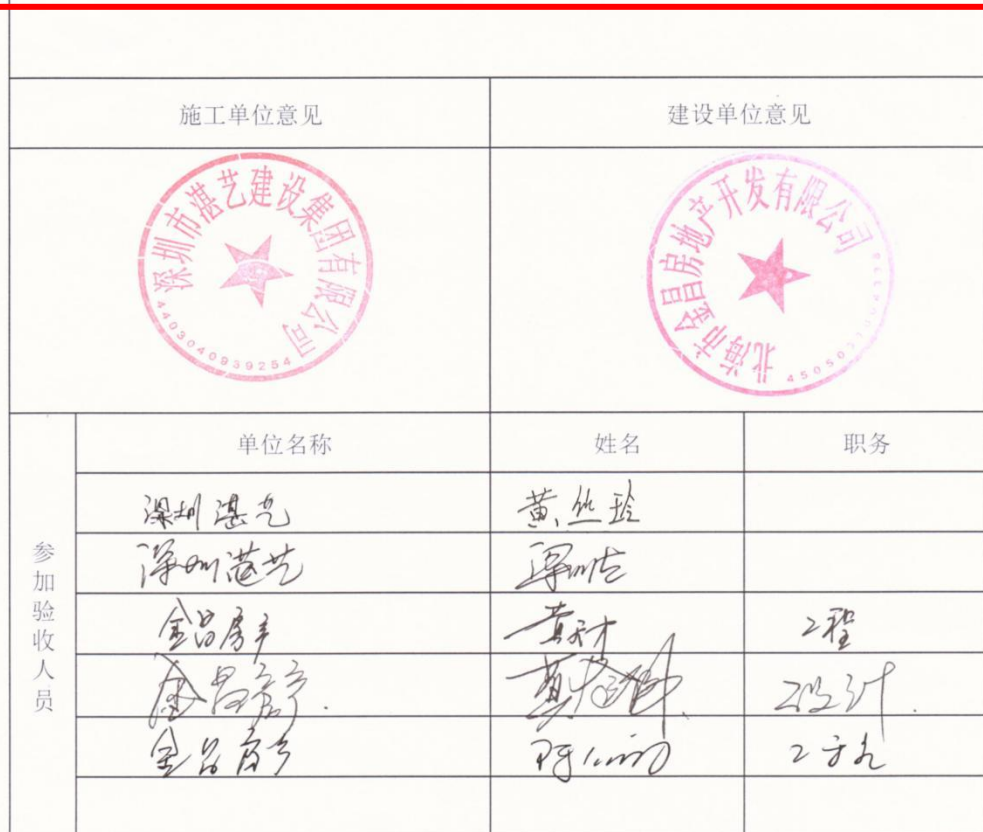 施工单位意见 建设单位意见
深圳市湛艺建设集团有限公司
4403040939254
北海市金昌房地产开发有限公司
参加验收人员
单位名称 姓名 职务
深圳湛艺 黄丝玲
深圳湛艺
金昌房产 黄天才 工程
金昌房产 设计
金昌房产